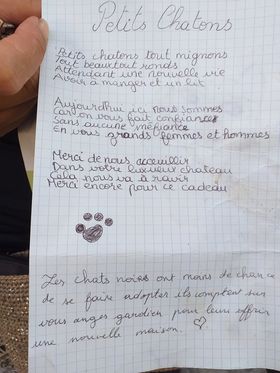 Petits Chatons
Petits chatons tout mignons
Tout beaux tout ronds
Attendant une nouvelle vie
Avoir à manger et un lit
Aujourd'hui ici nous sommes
Car on vous fait confiance
Sans aucune méfiance
En vous grands femmes et hommes
Merci de nous acceuillir
Dans votre luxueux chateau
Cela nous va à ravir
Merci encore pour ce cadeau
Les chats noirs ont moins de chance
de se faire adopter ils comptent sur
vous anges gardien pour leur offrir
une nouvelle maison.